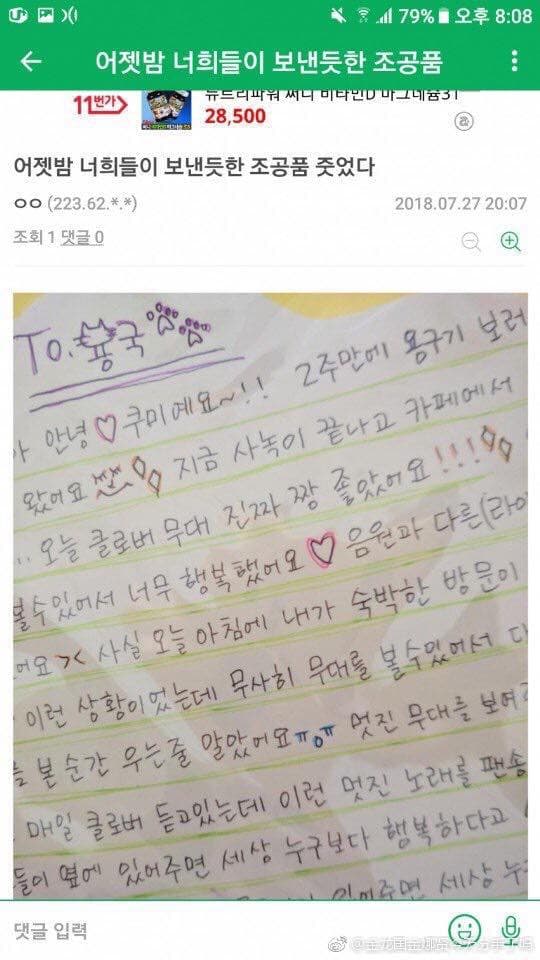 79% 오후 8:08
어젯밤 너희들이 보낸듯한 조공품
11번가
뉴트리파워 써니 비타민D 마그네슘31
28,500
ⓐ
어젯밤 너희들이 보낸듯한 조공품 줏었다
ㅇㅇ (223.62.*.*) 2018.07.27 20:07
조회 1 댓글 0
To. 용국
안녕♡쿠미예요~!! 2주만에 용구기 보러
왔어요 지금 사녹이 끝나고 카페에서
..오늘 클로버 무대 진짜 짱 좋았어요!!!
볼수있어서 너무 행복했어요♡ 음원과 다른(라이
어요>< 사실 오늘 아침에 내가 숙박한 방문이
이런 상황이었는데 무사히 무대를 볼수있어서 다
를 본순간 우는줄 알았어요ㅠㅇㅠ 멋진 무대를 보여
매일 클로버 듣고있는데 이런 멋진 노래를 팬송
들이 옆에 있어주면 세상 누구보다 행복하다고
있어주면 세상 누구
댓글 입력